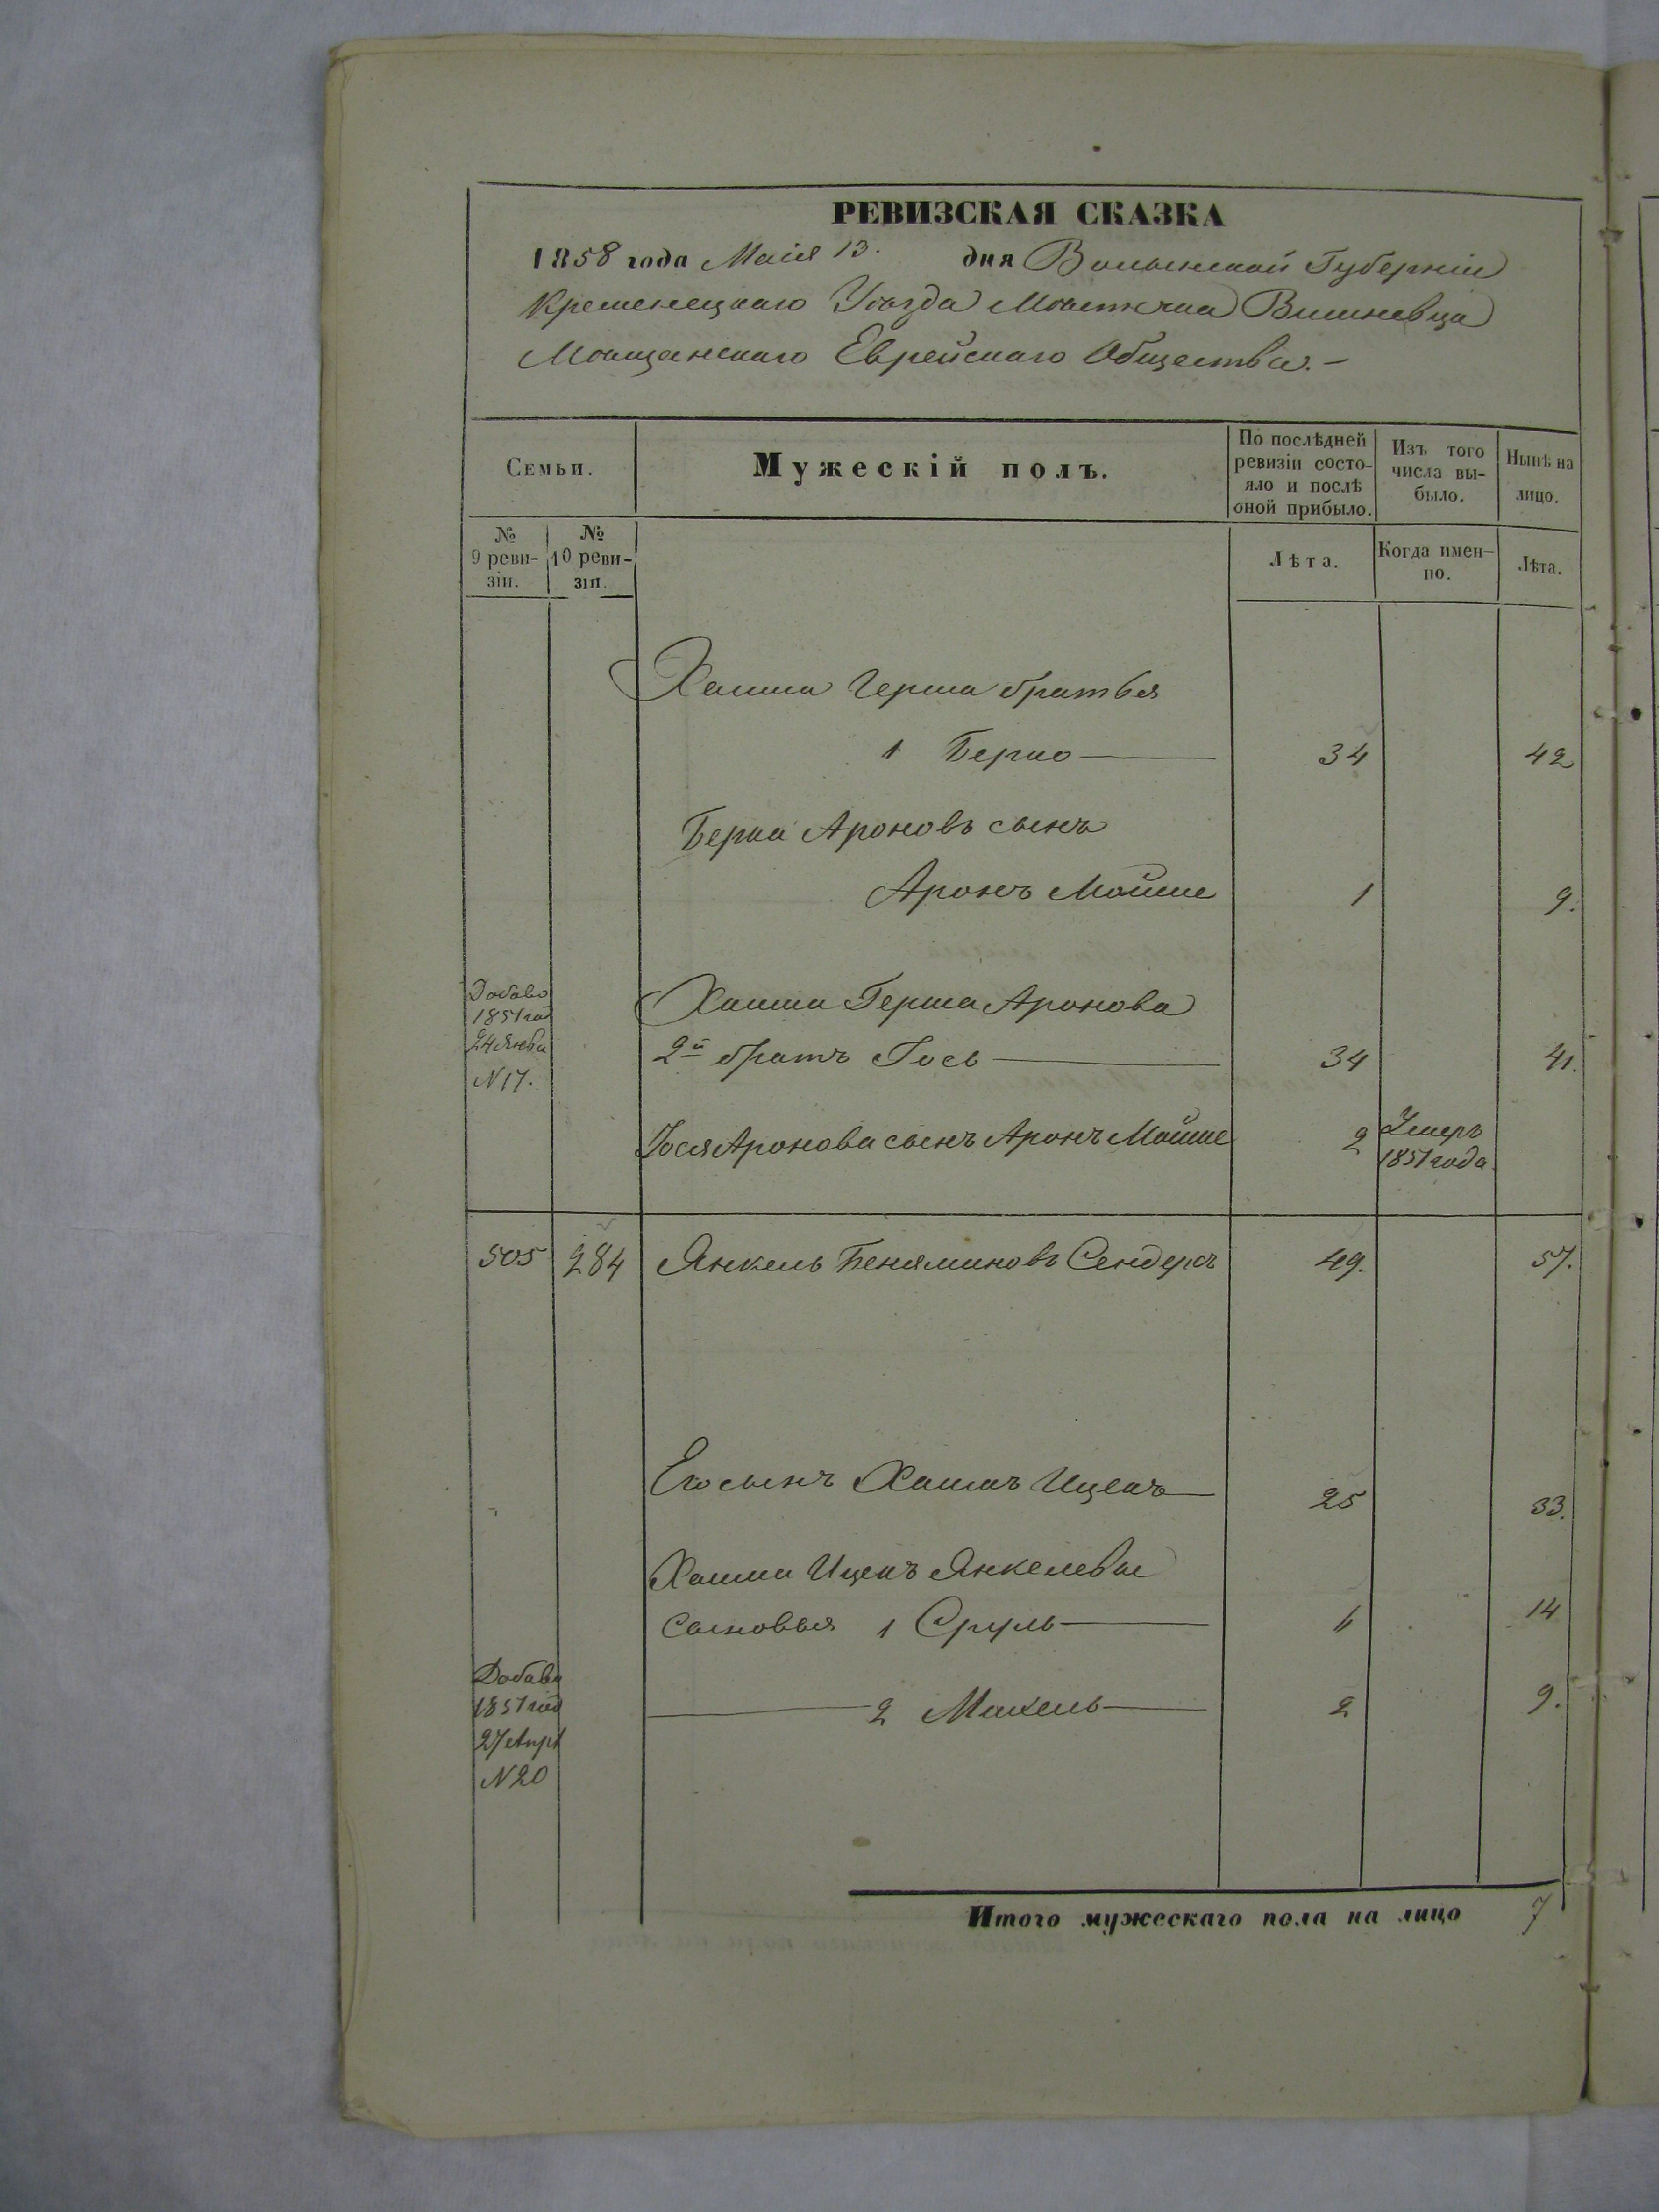 РЕВИЗСКАЯ СКАЗКА
1858 года Маія 13. дня Волынской Губерніи
Кременецкаго Уѣзда Мѣстечка Вишневца
Мѣщанскаго Еврейскаго Общества.—
Семьи.
Мужескій полъ.
По послѣдней
ревизіи состо-
яло и послѣ
оной прибыло.
Изъ того
числа вы-
было.
Нынѣ на
лицо.
№
9 реви-
зіи.
№
10 реви-
зіи.
Лѣта.
Когда имен-
но.
Лѣта.
Хаима Герша братья
1 Берко 34 42
Берка Ароновъ сынъ
Аронъ Мойше 1 9.
Добаво
1851 год
24 Янва
N 17.
Хаима Герша Аронова
2й братъ Іось 34 41.
Іося Аронова сынъ Аронъ Мойше 2 Умеръ
1851 года
505 284 Янкель Беняминовъ Сендеръ 49. 57.
Его сынъ Хаимъ Ицекъ 25 33.
Хаима Ицекъ Янкелевы
сыновья 1 Сруль 6 14
Добаво
1851 год
27 Апрл
N 20
2 Михель 2 9.
Итого мужескаго пола на лицо 7